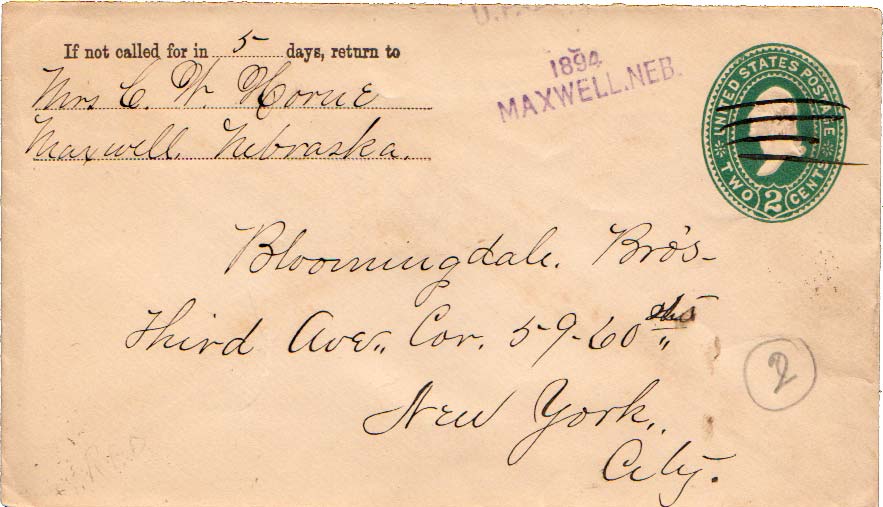 If not called for in 5 days, return to
Mrs C. W. Horne
Maxwell, Nebraska.
1894
MAXWELL, NEB.
UNITED STATES POSTAGE
TWO 2 CENTS
Bloomingdale. Bro's-
Third Ave., Cor. 59-60 ths
New York,
City.
2